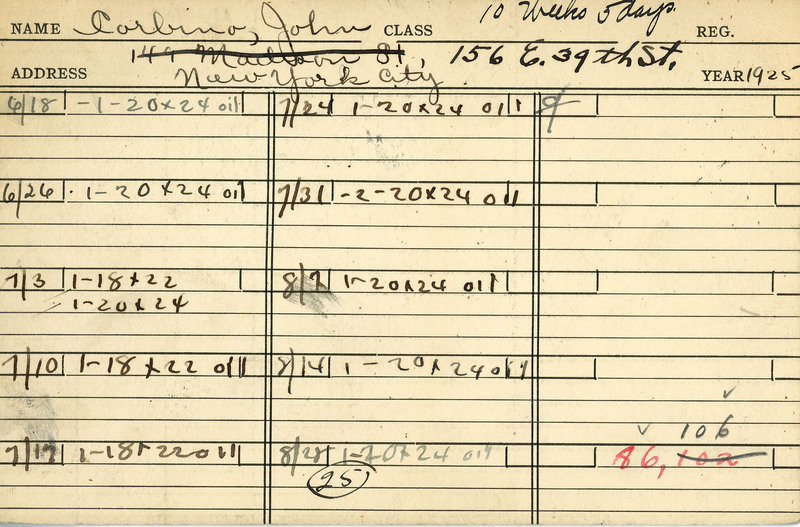 NAME Corbino, John CLASS 10 Weeks 5 days. REG.
149 Madison St, 156 E. 39th St.
ADDRESS New York City YEAR 1925
6/18 -1-20x24 oil
6/26 1-20x24 oil
7/3 1-18x22
1-20x24
7/10 1-18x22 oil
7/17 1-18x22 oil
7/24 1-20x24 oil
7/31 -2-20x24 oil
8/7 1-20x24 oil
8/14 1-20x24 oil
8/28 1-20x24 oil
25
106
86, 102